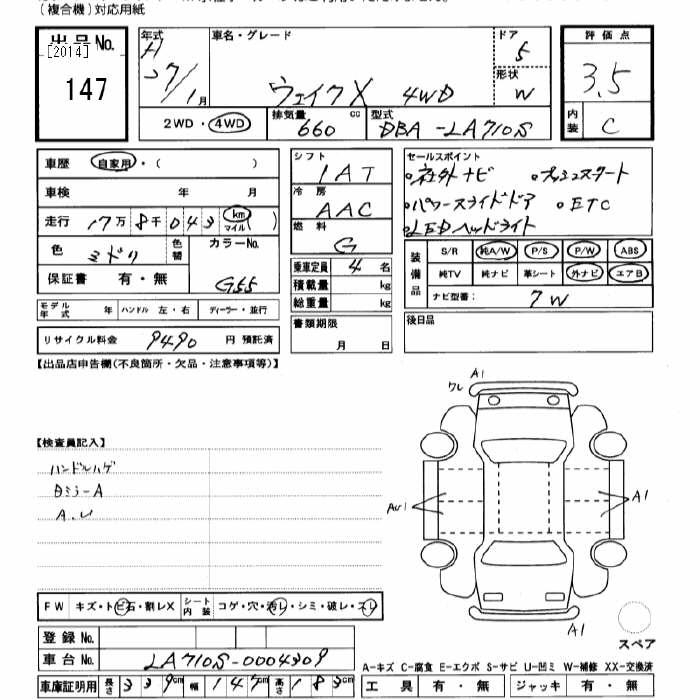 (複合機)対応用紙
出品No. 147
[2014]
年式 H 27/1月
車名・グレード ウェイク X 4WD
ドア 5
形状 W
2WD・4WD
排気量 660 cc
型式 DBA-LA710S
評価点 3.5
内装 C
車歴 自家用・( )
車検 年 月
走行 17万8千043 km マイル ( )
色 ミドリ 色替
カラーNo. G55
保証書 有・無
モデル年式 年 ハンドル 左・右 ディーラー・並行
リサイクル料金 9490 円 預託済
シフト IAT
冷房 AAC
燃料 G
乗車定員 4 名
積載量 kg
総重量 kg
書類期限 月 日
セールスポイント
社外ナビ プッシュスタート
パワースライドドア ETC
LEDヘッドライト
装備品 S/R 純A/W P/S P/W ABS
純TV 純ナビ 革シート 外ナビ エアB
ナビ型番: 7W
後日品
【出品店申告欄(不良箇所・欠品・注意事項等)】
【検査員記入】
ハンドルハゲ
Bミラ-A
A.U
A1
ワレ
A1
A1
FW キズ・トビ石・割レX シート内装 コゲ・穴・汚レ・シミ・破レ・スレ
登録No.
車台No. LA710S-0004309
車庫証明用 長さ 339cm 幅 147cm 高さ 183cm
スペア
A-キズ C-腐食 E-エクボ S-サビ U-凹ミ W-補修 XX-交換済
工具 有・無 ジャッキ 有・無